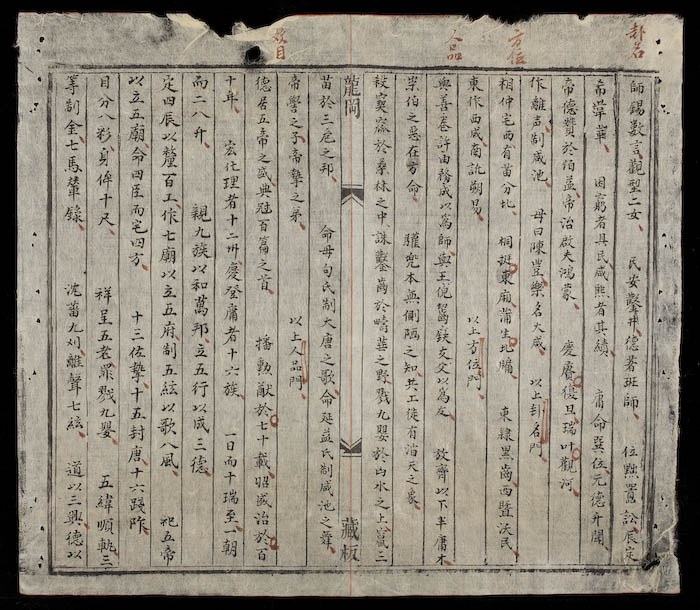 卦名
方位
人品
数目
師錫數言觀型二女 民安鑿井德著班師 位黙訟辰定
希華 因窮者具民咸熙者其績 庸命巽位元德升聞
帝德贊於伯益帝治啟夫鴻蒙 慶賡復旦瑞叶觀河
作離制咸池 母曰陳豐樂名大咸 以上卦名門
相仲宅西有苗分北 桐挺東廂蒲生北牖 東隸黑齒西暨沃民
東作西成南訛朔易 以上方位門
與善卷許由務成以為師與王倪齧缺支父以為友 放齊以下半庸才
崇伯之惡在方命 驩兜本無側陋之知共工徒有滔天之象
殺窫窳於桑林之中誅鑿齒於疇華之野戮九嬰於凶水之上竄三
龍岡 藏板
苗於三危之邦 命毋句氏制大唐之歌命延益氏制咸池之舞
帝嚳之子帝摯之弟 以上人品門
德居五帝之盛典冠百篇之首 播勳猷於七十載昭盛治於百
十年 宏化理者十二州慶登庸者十六族 一日而十瑞至一朝
而二八升 親九族以和萬邦立五行以成三德
定四辰以釐百工作七廟以立五府制五絃以歌八風 祀五帝
以立五廟命四臣而宅四方 十三佐摯十五封唐十六踐阼
目分八彩身侔十尺 祥呈五老罪戮九嬰 五緯順軌三
等制金七馬輦錄 沈蓄九刈離聲七絃 道以三興德以